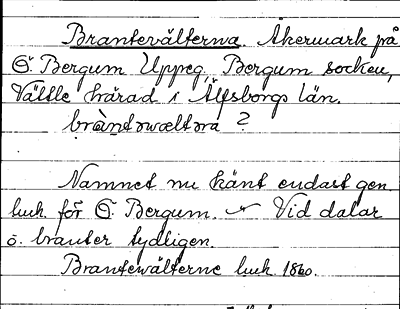 Brantevälterna. Åkermark på
Ö. Bergum Uppeg, Bergum socken,
Vättle härad i Älfsborgs län.
bràntəwæltəra ?
Namnet nu känt endast gen.
luk. för Ö. Bergum. Vid dalar
o. branter tydligen.
Brantewälterne luk 1860.